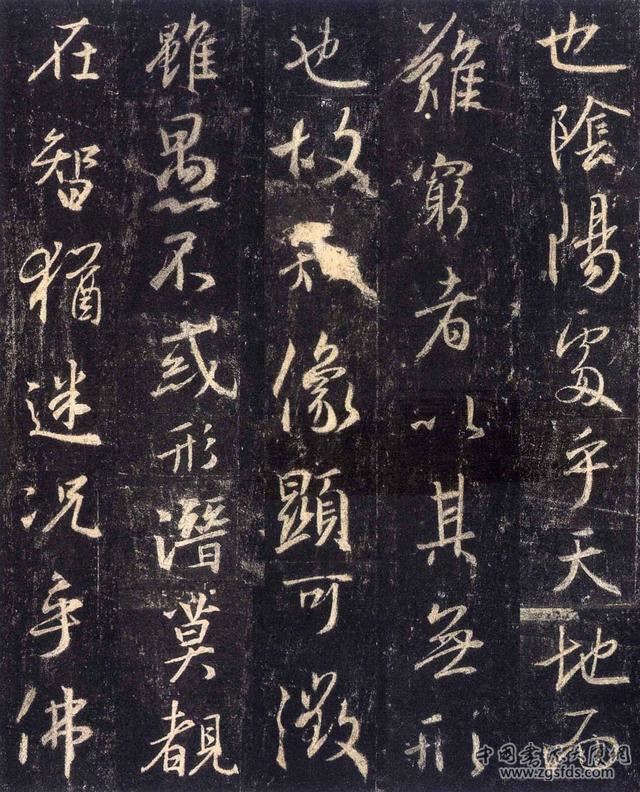 也陰陽處乎天地而
難窮者以其無形
也故像顯可徵
雖愚不惑形潛莫覩
在智猶迷況乎佛
www.zgsfds.com